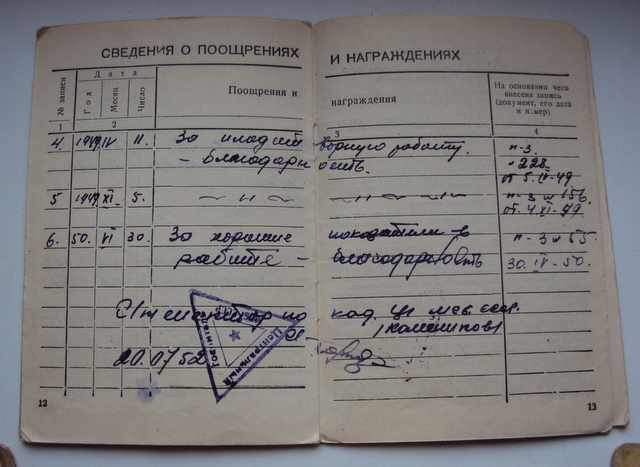 СВЕДЕНИЯ О ПООЩРЕНИЯХ И НАГРАЖДЕНИЯХ
№ записи
Дата
Год
Месяц
Число
Поощрения и награждения
На основании чего
внесена запись
(документ, его дата
и номер)
1 2 3 4
4. 1949 IV 11. За плодотворную работу. п-з.
- благодарность. 228
от 5. IV-49.
5 1949 XI. 5. — " — — " — п-з № 156.
от. 4. XI-49.
6. 50. VI 30. За хорошие показатели в п-з № 65.
работе - благодарность 30. IV-50.
С/т инспектор по кад.
20.07.52
Центральный
Госпиталь
12
13